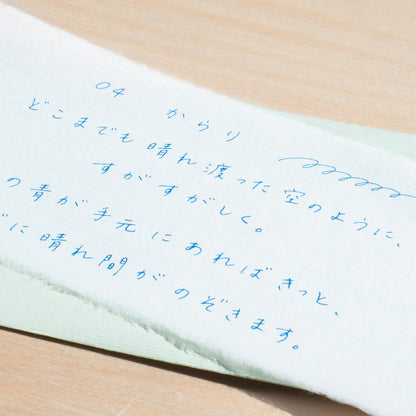 04 からり
どこまでも晴れ渡った空のように、
すがすがしく。
の青が手元にあればきっと、
に晴れ間がのぞきます。